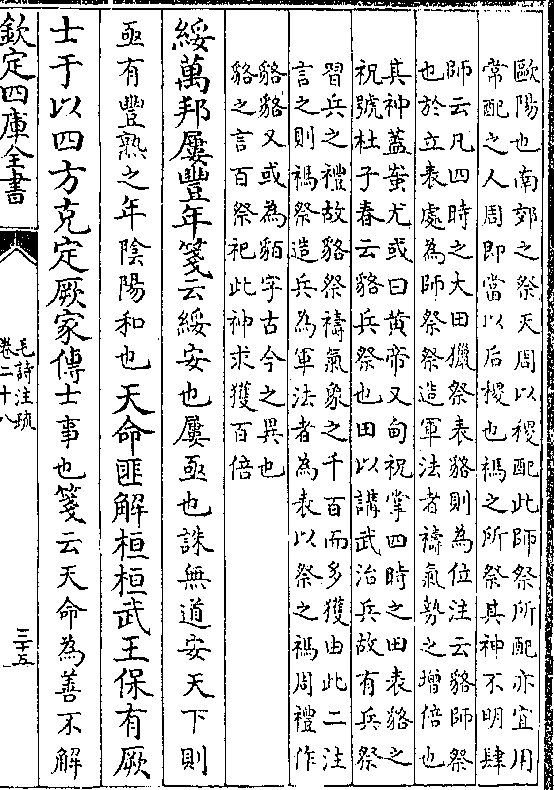 歐陽也南郊之祭天周以稷配此師祭所配亦宜用
常配之人周即當以后稷也禡之所祭其神不明肆
師云凡四時之大田獵祭表貉則為位注云貉師祭
也於立表處為師祭祭造軍法者禱氣勢之增倍也
其神蓋蚩尤或曰黄帝又甸祝掌四時之田表貉之
祝號杜子春云貉兵祭也田以講武治兵故有兵祭
習兵之禮故貉祭禱氣象之千百而多獲由此二注
言之則禡祭造兵為軍法者為表以祭之禡周禮作
貉貉又或為貊字古今之異也
貉之言百祭祀此神求獲百倍
綏萬邦屢豐年箋云綏安也屢亟也誅無道安天下則
亟有豐熟之年陰陽和也天命匪解桓桓武王保有厥
士于以四方克定厥家傳士事也箋云天命為善不解
欽定四庫全書
毛詩注疏
卷二十八
三十五